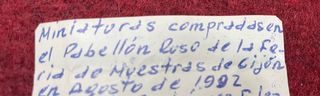 Miniaturas compradas en
el Pabellón Ruso de la Fe-
ria de Muestras de Gijón
en Agosto de 1992